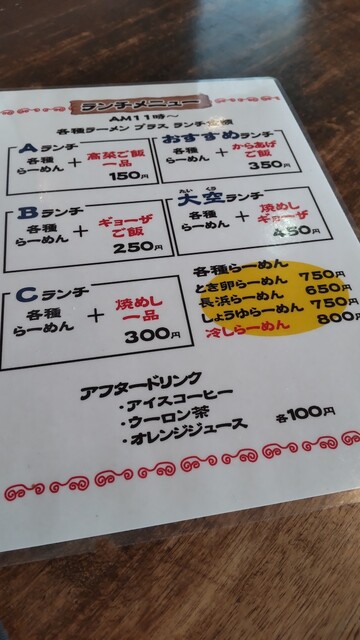 ランチメニュー
AM11時～
各種ラーメン プラス ランチ
Aランチ
各種らーめん + 高菜ご飯一品
150円
おすすめランチ
各種らーめん + からあげご飯
350円
Bランチ
各種らーめん + ギョーザご飯
250円
たい くう
大空ランチ
各種らーめん + 焼めしギョーザ
450円
Cランチ
各種らーめん + 焼めし一品
300円
各種らーめん
とき卵らーめん 750円
長浜らーめん 650円
しょうゆらーめん 750円
冷しらーめん 800円
アフタードリンク
・アイスコーヒー
・ウーロン茶
・オレンジジュース 各100円